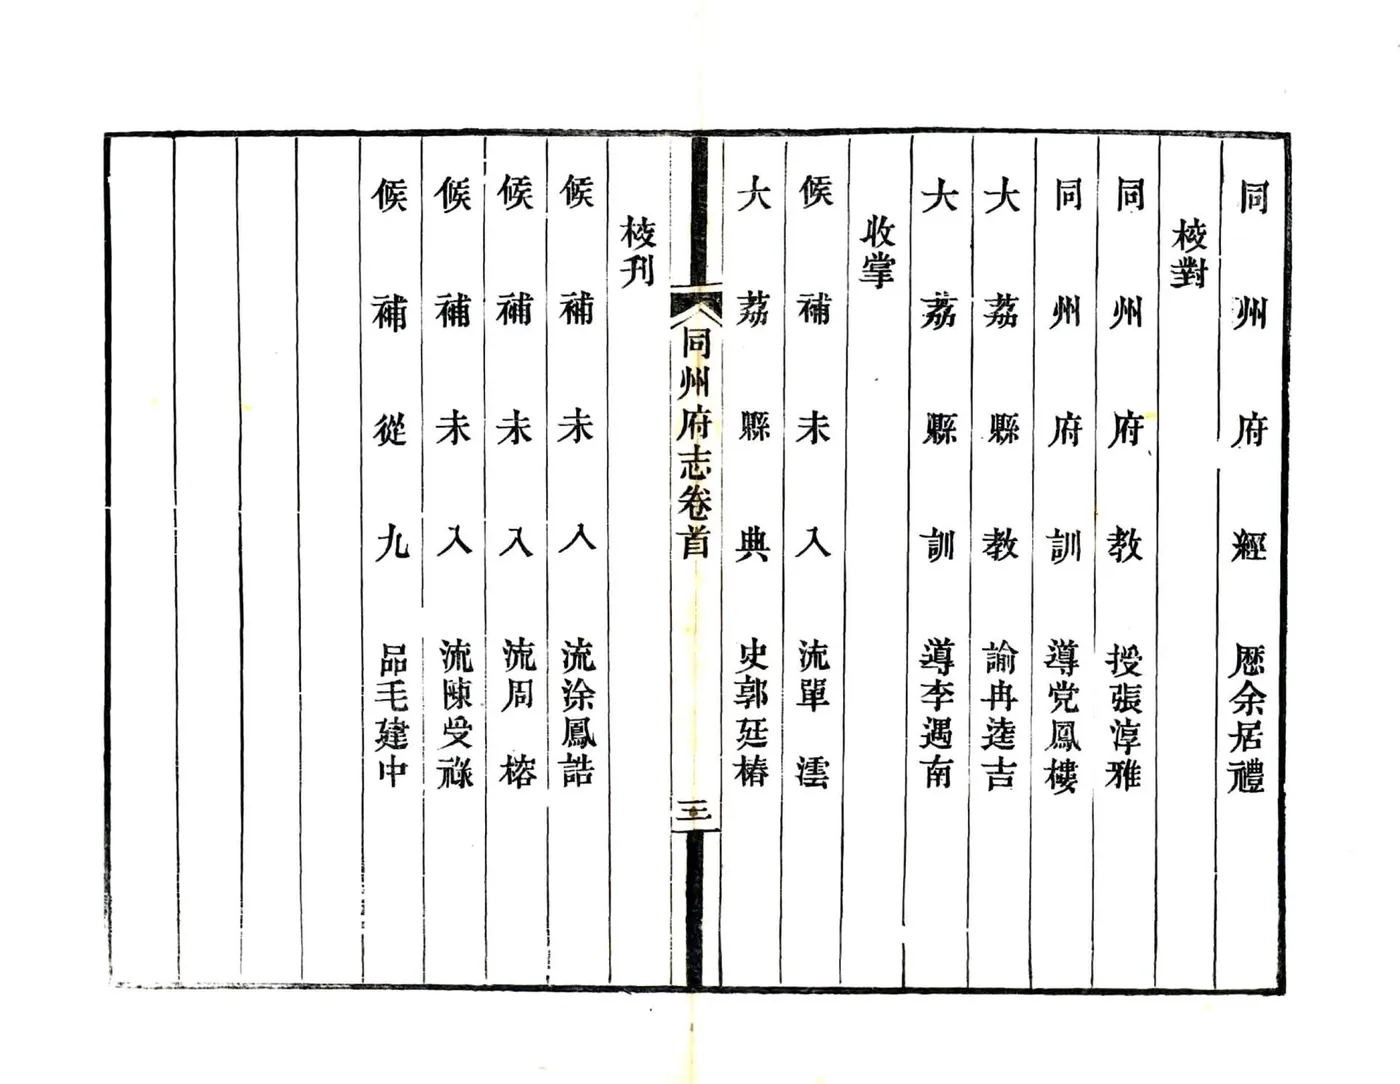 同州府經歷余居禮
校對
同州府教授張淳雅
同州府訓導党鳳樓
大荔縣教諭冉逵吉
大荔縣訓導李遇南
收掌
候補未入流單澐
大荔縣典史郭廷椿
同州府志卷首
三
校刋
候補未入流涂鳳誥
候補未入流周榕
候補未入流陳受祿
候補從九品毛建中